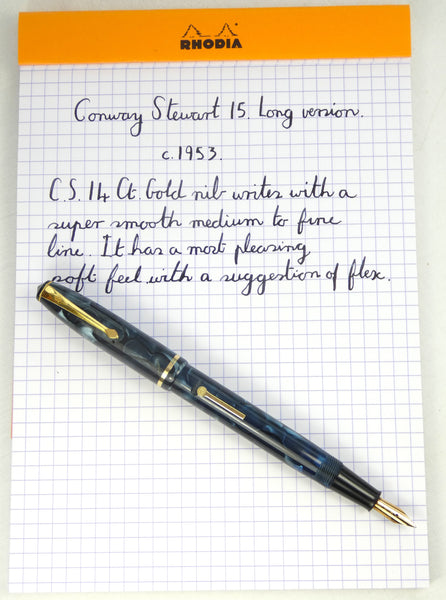 RHODIA
Conway Stewart 15. Long version.
c.1953.
C.S. 14 Ct. Gold nib writes with a
super smooth medium to fine
line. It has a most pleasing
soft feel with a suggestion of flex.